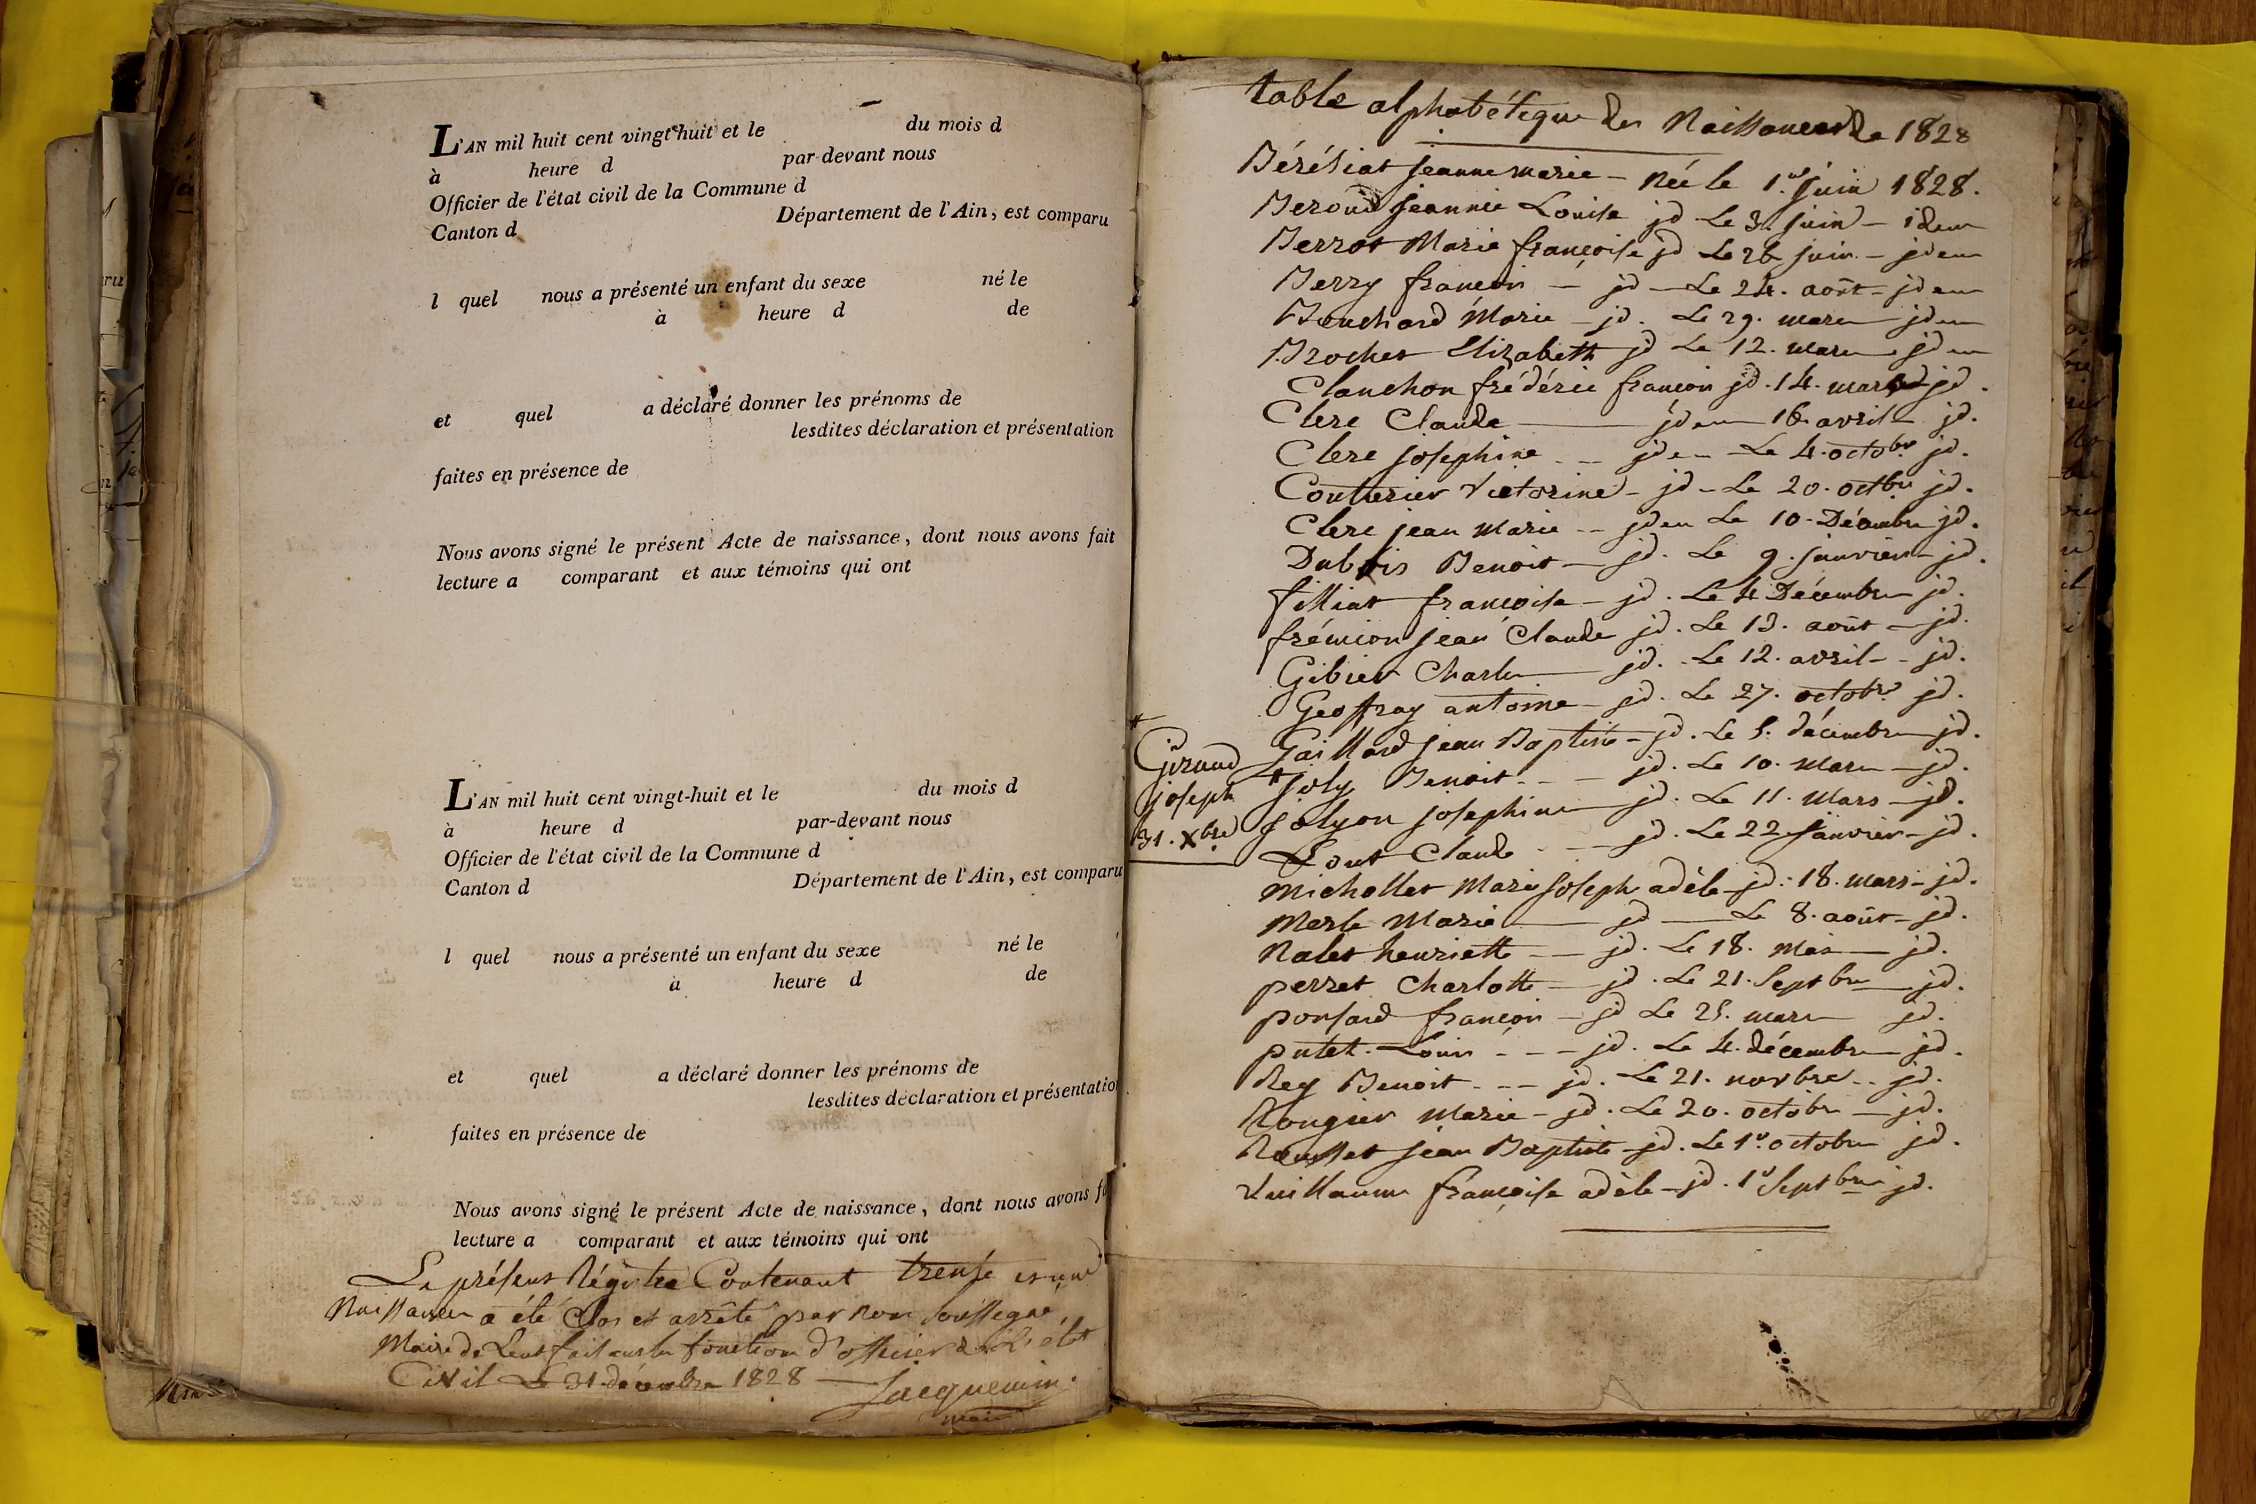 L'AN mil huit cent vingt-huit et le du mois d
à heure d par-devant nous
Officier de l'état civil de la Commune d
Canton d Département de l'Ain, est comparu
l quel nous a présenté un enfant du sexe né le
à heure d de
et quel a déclaré donner les prénoms de
lesdites déclaration et présentation
faites en présence de
Nous avons signé le présent Acte de naissance, dont nous avons fait
lecture a comparant et aux témoins qui ont
L'AN mil huit cent vingt-huit et le du mois d
à heure d par-devant nous
Officier de l'état civil de la Commune d
Canton d Département de l'Ain, est comparu
l quel nous a présenté un enfant du sexe né le
à heure d de
et quel a déclaré donner les prénoms de
lesdites déclaration et présentation
faites en présence de
Nous avons signé le présent Acte de naissance, dont nous avons f
lecture a comparant et aux témoins qui ont
Le présent Régistre Contenant trente et une
Naissances a été Clos et arrêté par nous soussigné
Maire de Lent faisant les fonctions d'officier de l'état
Civil Le 31 décembre 1828 Jacquemin
maire
table alphabétique des Naissances de 1828
Béréziat jeanne marie - Née le 1.er Juin 1828.
Beroud jeannie Louise jd Le 3. juin - idem
Berrot Marie françoise jd Le 26 juin - jdem
Berry françois - jd - Le 24. août - jdem
Bouchard Marie - jd. Le 29. mars jdem
Brochet Elizabeth jd Le 12. mars jdem
Clanchon frédéric françois jd. 14. mars jd.
Clerc Claude jdem 16 avril jd.
Clerc josephine - - jdem - Le 4. octobre jd.
Couturier Victorine - jd - Le 20. octbre jd.
Clerc jean Marie - - jdem Le 10. Décembre jd.
Dubois Benoit - jd. Le 9. janvier - jd.
filliat françoise - jd. Le 4 Décembre jd.
frémion jean Claude jd. Le 13. août - jd.
Gibier Charles jd. Le 12. avril - jd.
Geoffray antoine - jd. Le 27. octobre jd.
Gaillard jean Baptiste - jd. Le 5. décembre jd.
* Giraud
joseph
31. Xbre
* Joly Benoit - - - jd. Le 10. Mars - jd.
jolyon josephine jd. Le 11. Mars - jd.
Lout Claude - - jd. Le 22 Janvier - jd.
Michollet Marie Joseph adèle - jd. 18. mars - jd.
Merle Marie jd - Le 8. août - jd.
Nalet henriette - - jd. Le 18. Mai - jd.
perret Charlotte - jd. Le 21. Septbre jd.
ponsard françois - jd Le 25. mars jd.
putet. Louis - - - jd. Le 4. décembre jd.
Rey Benoit - - - jd. Le 21. novbre - - jd.
Rougier Marie - jd. Le 20. octobre - jd.
Rousset jean Baptiste - jd. Le 1er octobre jd.
Vuillaume françoise adèle - jd. 1er Septbre jd.